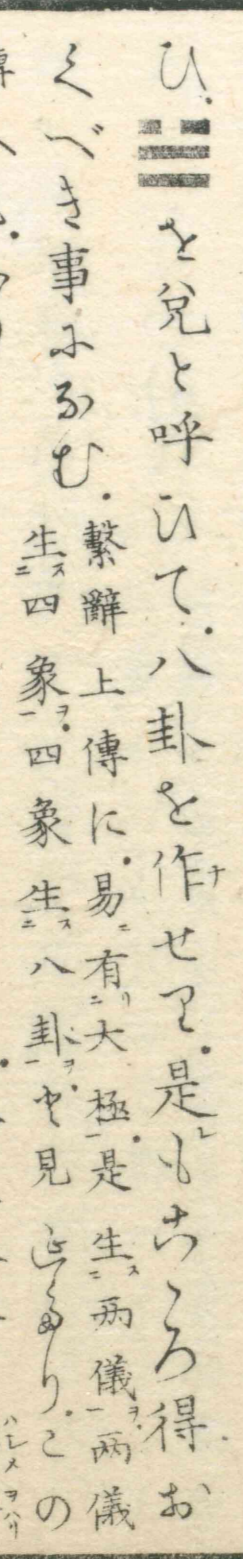 ひ。☱を兌と呼ひて。八卦を作せり。是もこゝろ得お
くべき事になむ。
繫辭上傳に。易有大極。是生兩儀。兩儀
生四象。四象生八卦。と見延たり。この